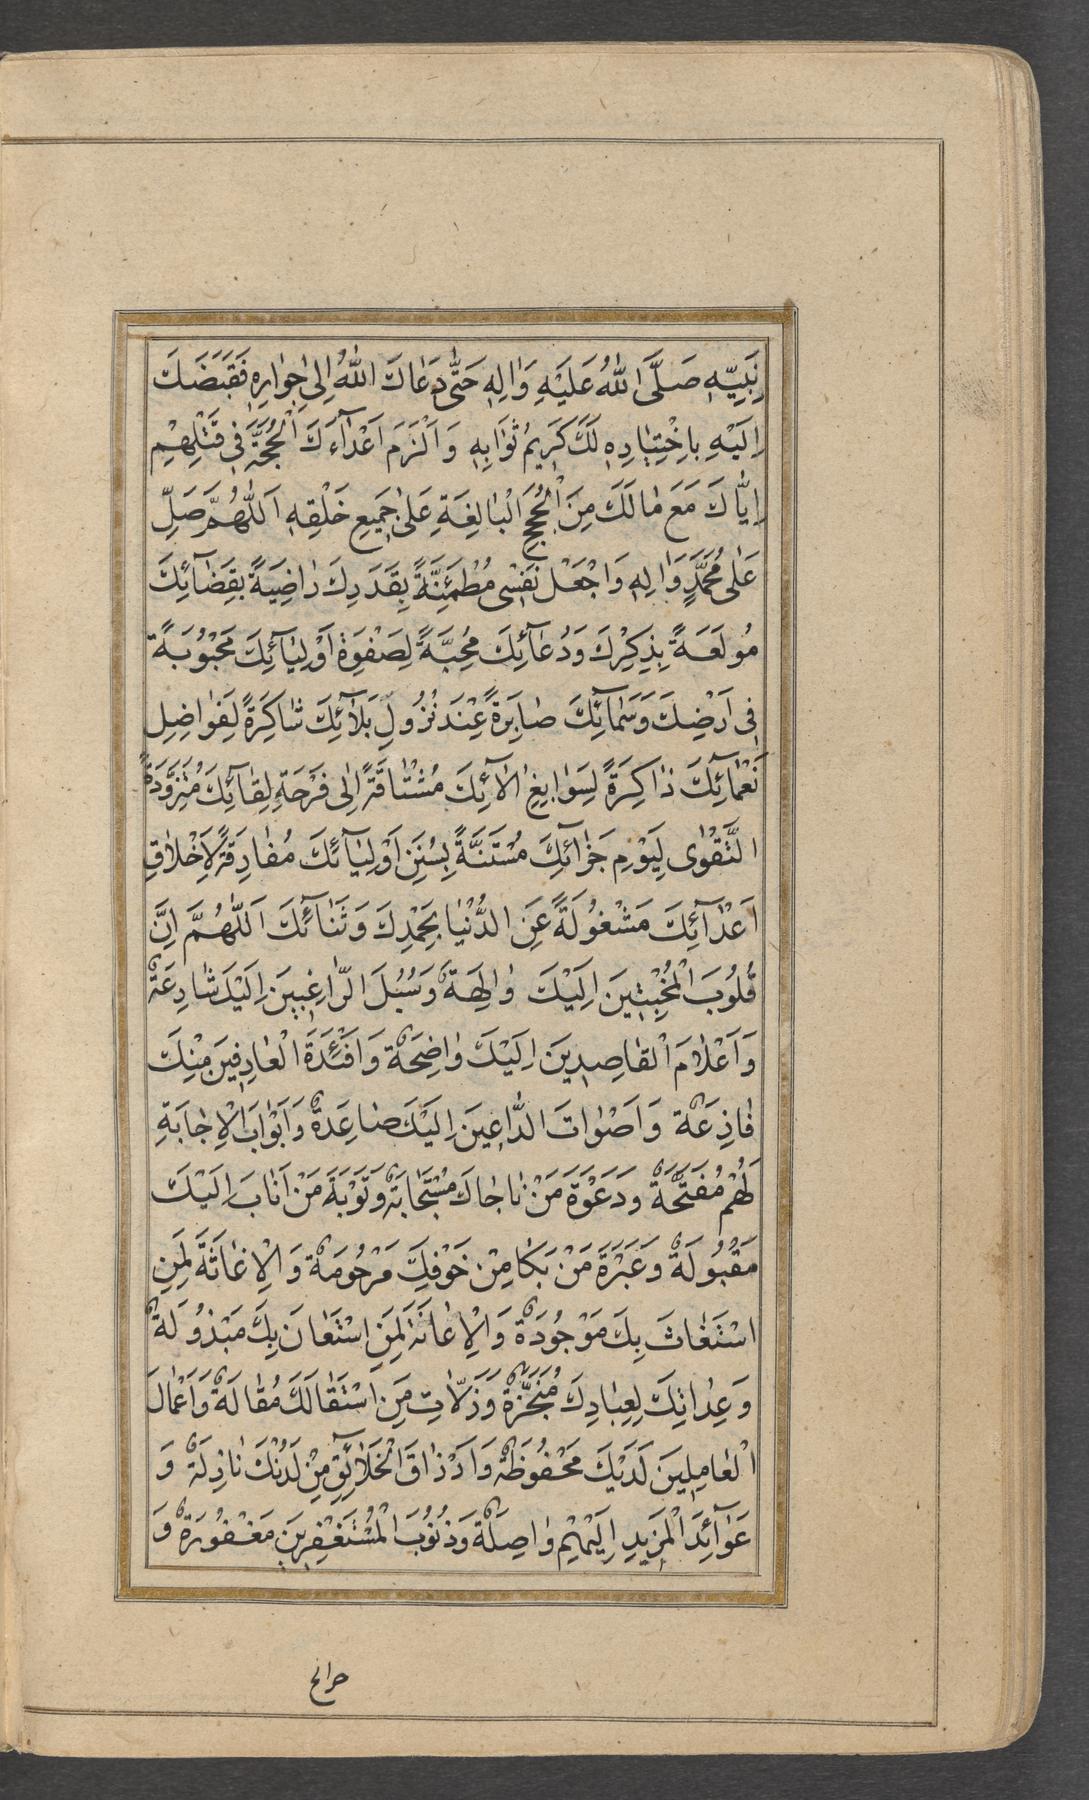 نَبِيِّهِ صَلَّى اللهُ عَلَيْهِ وَاٰلِهِ حَتّٰى دَعَاكَ اللهُ اِلىٰ جِوٰارِهِ فَقَبَضَكَ
اِلَيْهِ بِاخْتِيٰارِهِ لَكَ كَرِيمُ ثَوَابِهِ وَ اَلْزَمَ اَعْدٰآءَكَ الْحُجَّةَ فِى قَتْلِهِمْ
اِيّٰاكَ مَعَ مٰا لَكَ مِنَ الْحُجَجِ الْبٰالِغَةِ عَلىٰ جَمِيعِ خَلْقِهِ اَللّٰهُمَّ صَلِّ
عَلٰى مُحَمَّدٍ وَاٰلِهِ وَاجْعَلْ نَفْسِى مُطْمَئِنَّةً بِقَدَرِكَ رٰاضِيَةً بِقَضٰآئِكَ
مُولَعَةً بِذِكْرِكَ وَدُعٰآئِكَ مُحِبَّةً لِصَفْوَةِ اَوْلِيٰآئِكَ مَحْبُوبَةً
فِى اَرْضِكَ وَسَمٰآئِكَ صٰابِرَةً عِنْدَ نُزُولِ بَلٰآئِكَ شٰاكِرَةً لِفَوٰاضِلِ
نَعْمٰآئِكَ ذٰاكِرَةً لِسَوٰابِغِ اٰلٰآئِكَ مُشْتٰاقَةً اِلٰى فَرْحَةِ لِقٰآئِكَ مُتَزَوِّدَةً
التَّقْوٰى لِيَوْمِ جَزٰآئِكَ مُسْتَنَّةً بِسُنَنِ اَوْلِيٰآئِكَ مُفٰارِقَةً لِاَخْلٰاقِ
اَعْدٰآئِكَ مَشْغُولَةً عَنِ الدُّنْيٰا بِحَمْدِكَ وَثَنٰآئِكَ اَللّٰهُمَّ اِنَّ
قُلُوبَ الْمُخْبِتِينَ اِلَيْكَ وٰالِهَةٌ وَسُبُلَ الرّٰاغِبِينَ اِلَيْكَ شٰارِعَةٌ
وَاَعْلٰامَ الْقٰاصِدِينَ اِلَيْكَ وٰاضِحَةٌ وَاَفْئِدَةَ الْعٰارِفِينَ مِنْكَ
فٰازِعَةٌ وَاَصْوٰاتَ الدّٰاعِينَ اِلَيْكَ صٰاعِدَةٌ وَاَبْوٰابَ الْاِجٰابَةِ
لَهُمْ مُفَتَّحَةٌ وَدَعْوَةَ مَنْ نٰاجٰاكَ مُسْتَجٰابَةٌ وَتَوْبَةَ مَنْ اَنٰابَ اِلَيْكَ
مَقْبُولَةٌ وَعَبْرَةَ مَنْ بَكٰا مِنْ خَوْفِكَ مَرْحُومَةٌ وَالْاِغٰاثَةَ لِمَنِ
اسْتَغٰاثَ بِكَ مَوْجُودَةٌ وَالْاِعٰانَةَ لِمَنِ اسْتَعٰانَ بِكَ مَبْذُولَةٌ
وَعِدٰاتِكَ لِعِبٰادِكَ مُنْجَزَةٌ وَزَلّٰاتِ مَنِ اسْتَقٰالَكَ مُقٰالَةٌ وَاَعْمٰالَ
الْعٰامِلِينَ لَدَيْكَ مَحْفُوظَةٌ وَاَرْزٰاقَ الْخَلٰآئِقِ مِنْ لَدُنْكَ نٰازِلَةٌ وَ
عَوٰآئِدَ الْمَزِيدِ اِلَيْهِمْ وٰاصِلَةٌ وَذُنُوبَ الْمُسْتَغْفِرِينَ مَغْفُورَةٌ وَ
حوائج